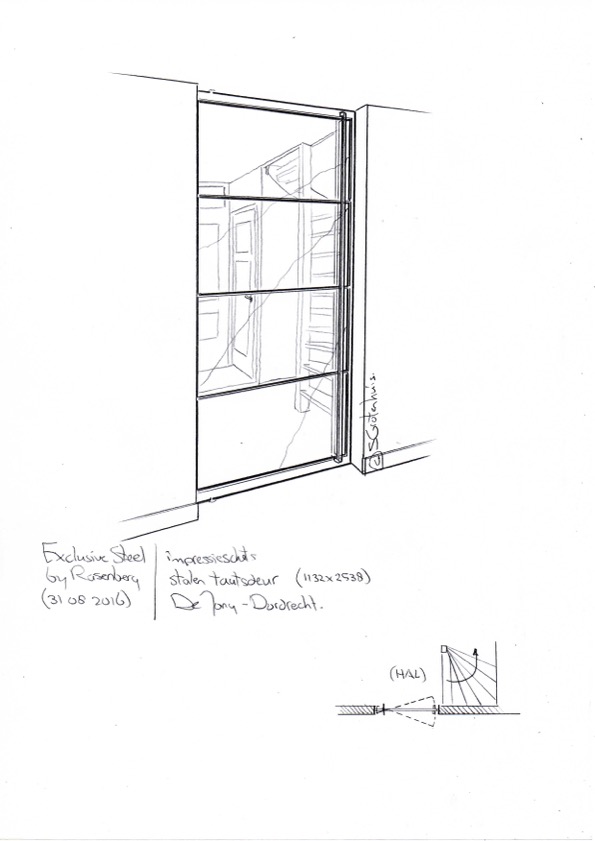 © SGrotenhuis.
Exclusive Steel
by Rosenberg
(31 08 2016)
impressieschets
stalen taatsdeur (1132x2538)
De Jong - Dordrecht.
(HAL)